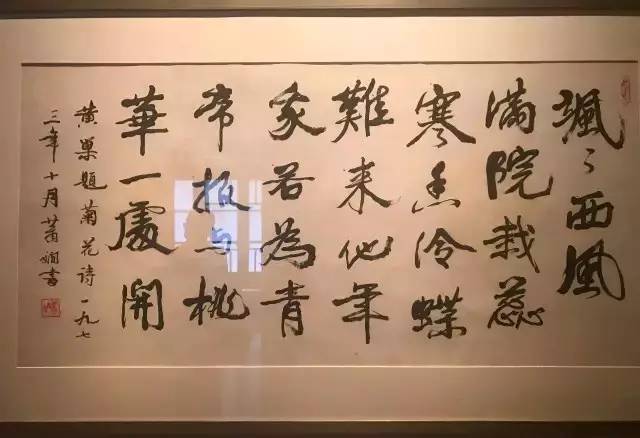 颯〻西風
滿院栽蕊
寒香冷蝶
難来他年
我若為青
帝报与桃
華一處開
黄巢题菊花诗一九七
三年十月萧娴書